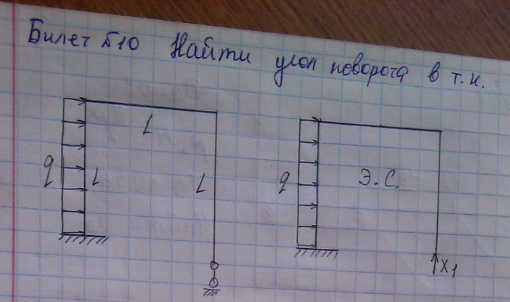 Билет №10 Найти угол поворота в т. к.
L
q
L
L
q
Э.С.
X1